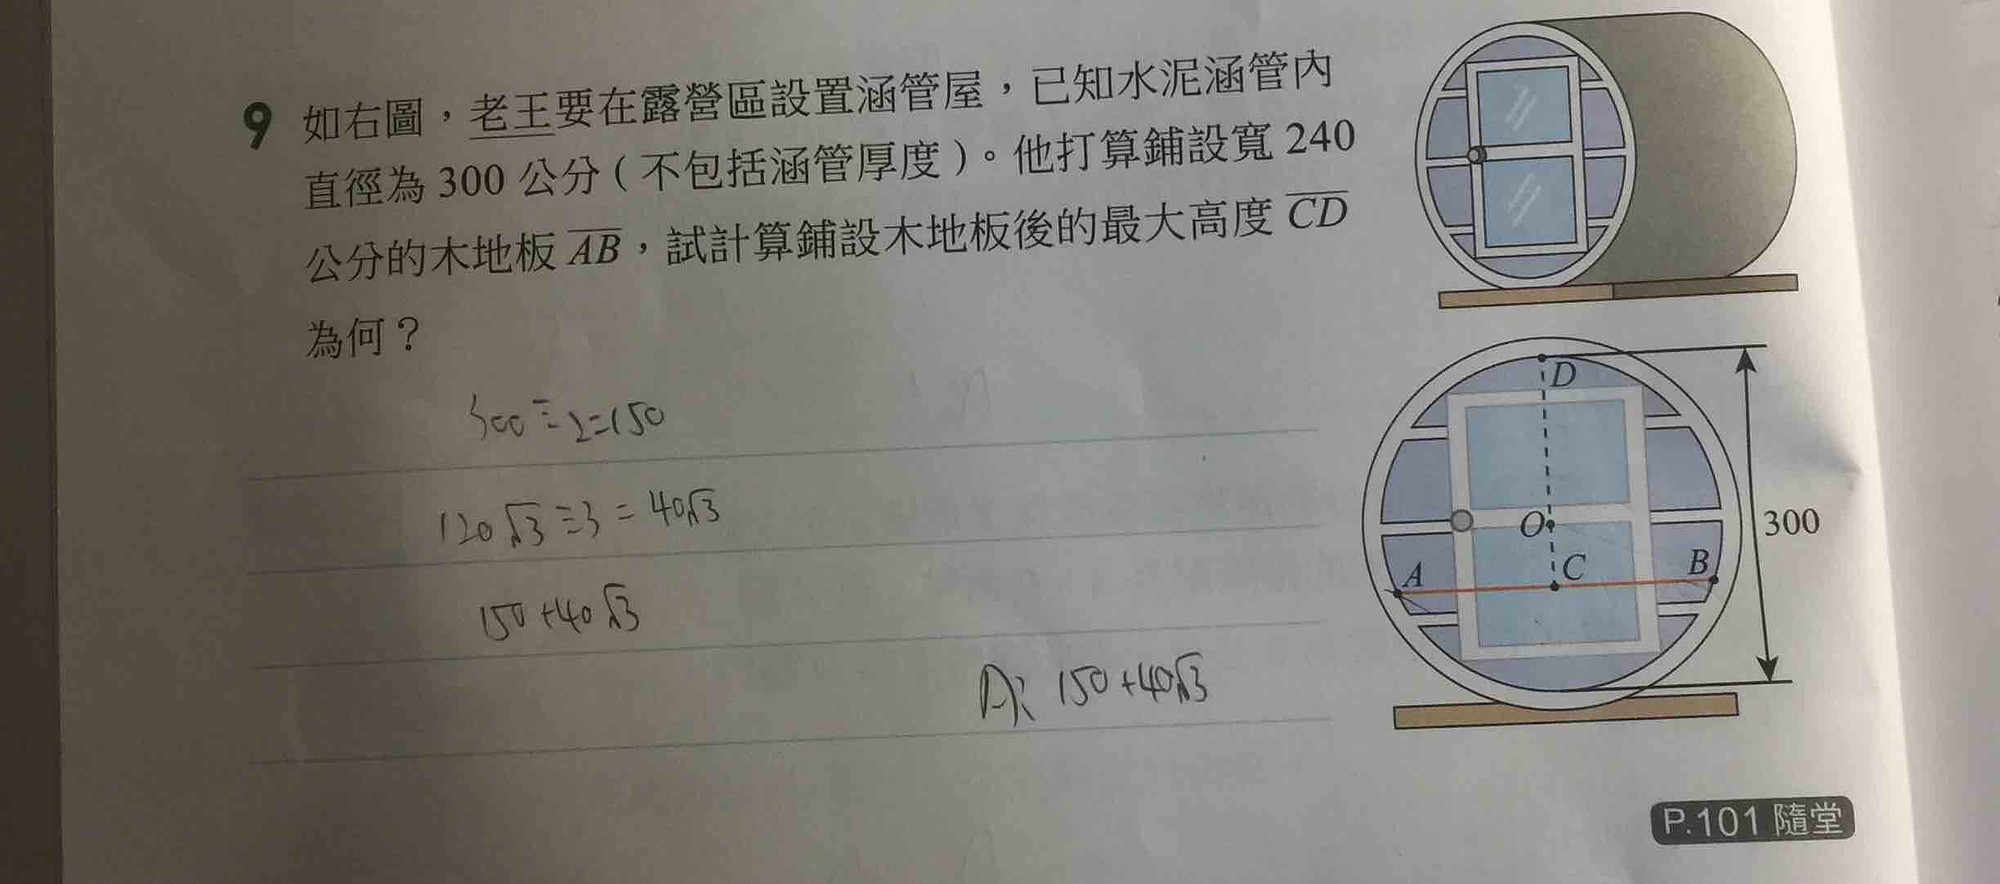 9 如右圖，老王要在露營區設置涵管屋，已知水泥涵管內
直徑為 300 公分（不包括涵管厚度）。他打算鋪設寬 240
公分的木地板 AB，試計算鋪設木地板後的最大高度 CD
為何？
300÷2=150
120√3÷3=40√3
150+40√3
A: 150+40√3
D
O
C
A
B
300
P.101 隨堂